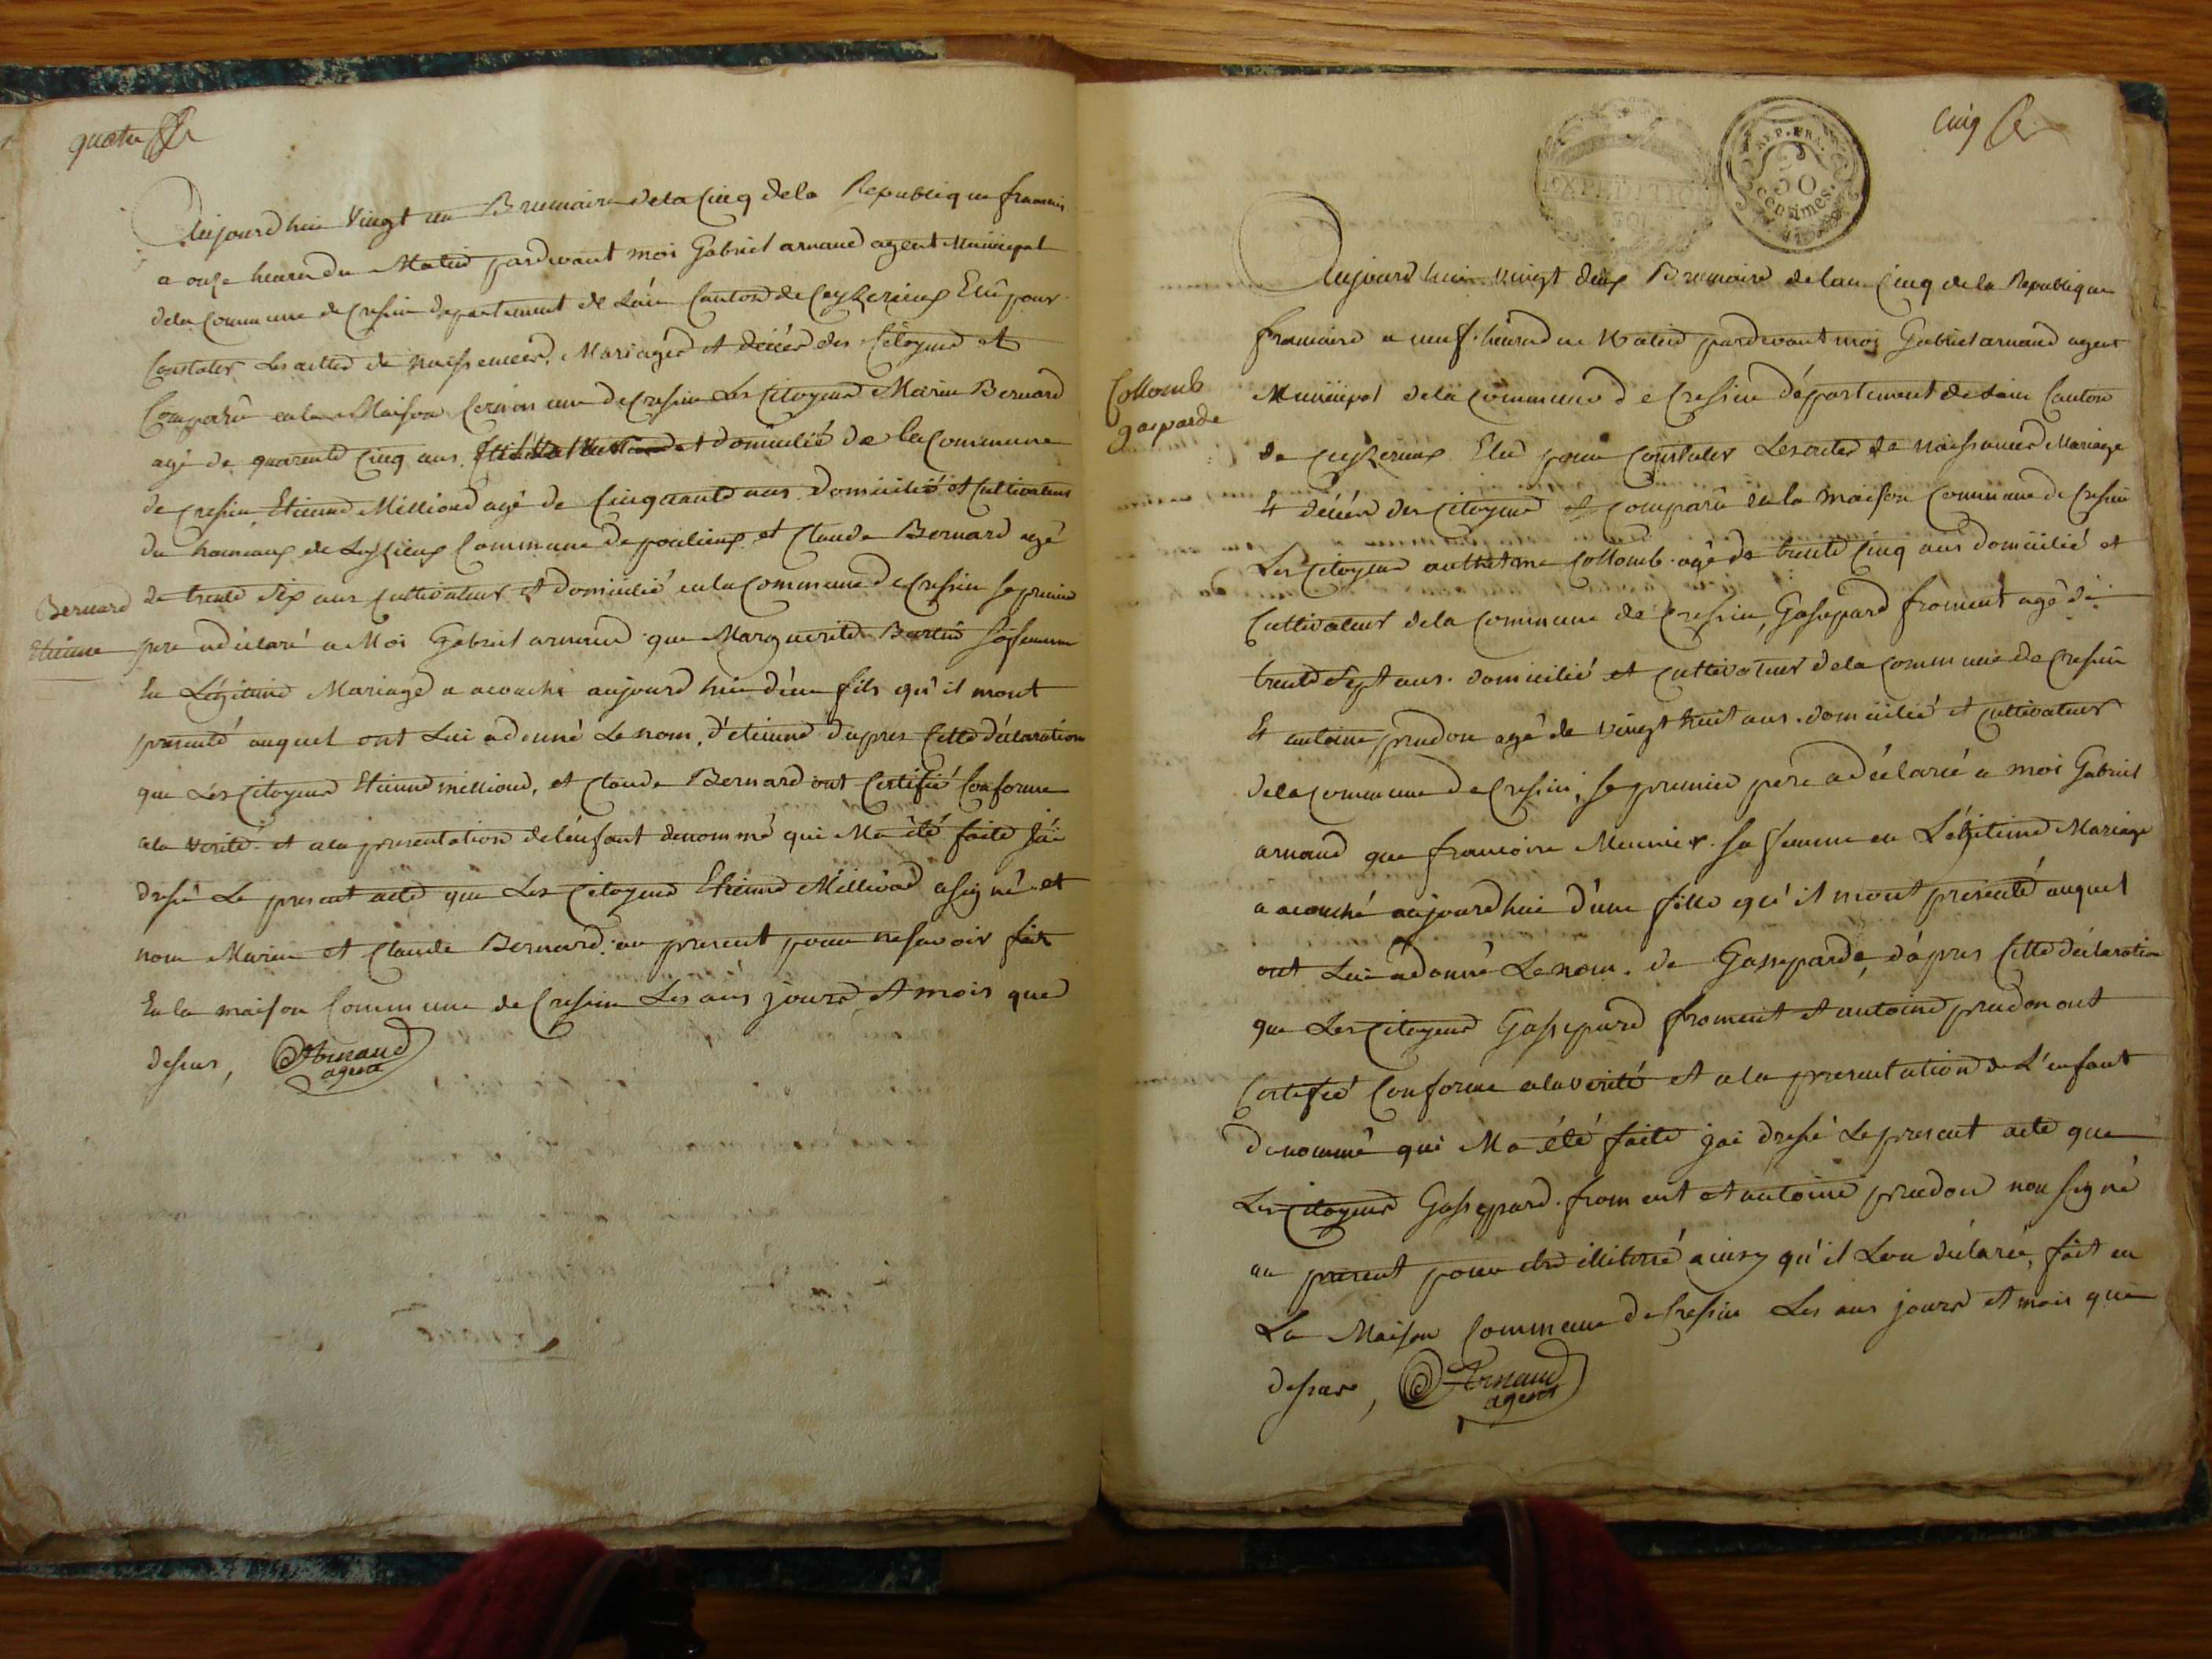 quatre
Aujourd hui Vingt un Brumaire dela Cinq dela Republique francais
a onze heures du Matin pardevant moi Gabriel arnaud agent Municipal
dela Commune de Cressin departement de Lain Canton de Ceyzerieux Elû pour
Constater Les actes de naissences, Mariages et décés des Citoyens et
Comparû en la Maison Commune de Cressin Les Citoyens Marin Bernard
agé de quarente Cinq ans et domicilié de la Commune
de Cressin, Etienne Milliond agé de Cinquante ans domicilié et Cultivateur
du hameaux de Commune de poulieux et Claude Bernard agé
de trente Six ans cultivateur et domicilié en la Commune de Cressin Le premier
Bernard
Etienne
pere a déclaré a Moi Gabriel arnaud que Marguerite Bertin Sa femme
En Légitime Mariage a acouché aujourd hui d'éun fils qu'il mont
presenté auquel ont Lui a donné Le nom d'étienne d'apres Cette déclaration
que Les Citoyens Etienne milliond, et Claude Bernard ont Certifié Conforme
ala verité et ala presentation de L'enfant denommé qui Ma été faite J'ai
dressé Le present acte que Les Citoyens Etienne Milliond a signé et
non Marin et Claude Bernard au present pour ne savoir fait
En la maison Commune de Cressin Les ans jours et mois que
dessus,
Arnaud
agent
Cinq
REP. FR.
50
centimes.
Aujourd hui vingt deux Brumaire de lan Cinq de la Republique
francaise a neuf heures du Matin pardevant moi Gabriel arnaud agent
Collomb
gasparde
Municipal dela Commune de Cressin département de Lain Canton
de Ceyzerieux Elu pour Constater Les actes de naissances Mariage
& décés des Citoyens et Comparû en la maison Commune de Cressin
Les Citoyens anthelme Collomb agé de trente Cinq ans domicilié et
Cultivateur dela Commune de Cressin, Gaspard froment agé de
trente Sept ans domicilié et cultivateur dela commune de Cressin
& antoine prudon agé de vingt huit ans domicilié et cultivateur
dela commune de Cressin, Le premier pere a déclaré a moi Gabriel
arnaud que francoise Meunier Sa femme en Légitime Mariage
a acouché aujourdhui d'une fille qu'il mont presenté auquel
ont Lui a donné Le nom de Gassparde, d'apres Cette déclaration
que Les Citoyens Gasspard froment et antoine prudon ont
Certifié Conforme ala verité et ala presentation de L'enfant
denommé qui Ma été faite jai dressé Le present acte que
Les Citoyens Gasspard froment et antoine prudon non signé
au present pour etre illiterré ainsy qu'il Lon déclarée, fait en
La Maison Commune de Cressin Les ans jours et mois que
dessus,
Arnaud
agent